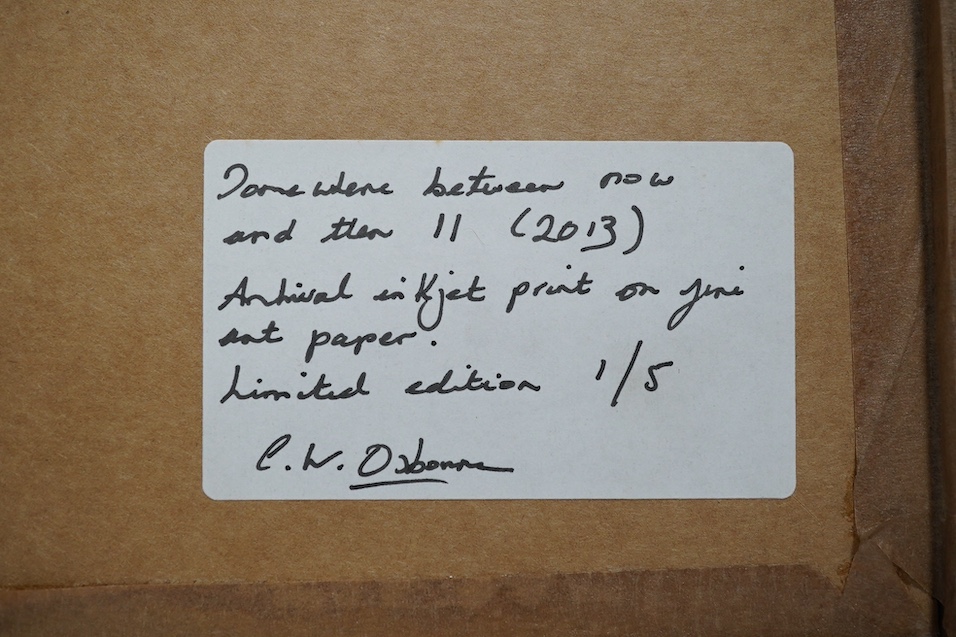 Somewhere between now
and then 11 (2013)
Archival inkjet print on fine
art paper.
Limited edition 1/5
C. W. Osborne